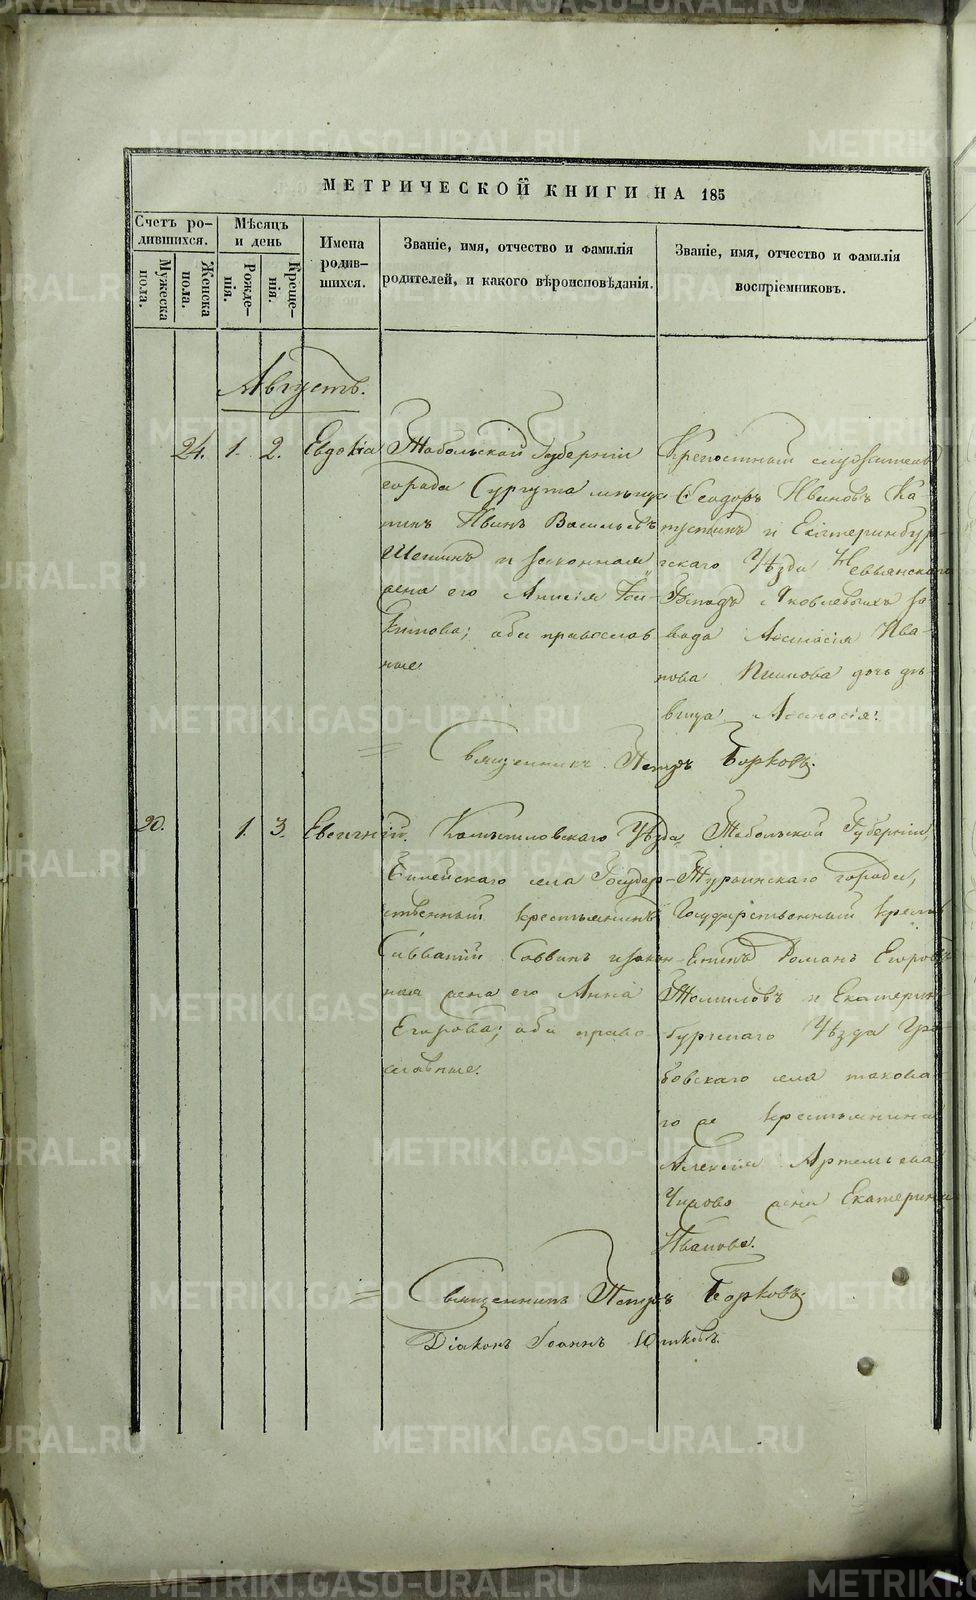 МЕТРИЧЕСКОЙ КНИГИ НА 185
Счетъ ро-
дившихся.
Мужеска
пола.
Женска
пола.
Мѣсяцъ
и день
Рожде-
нія.
Креще-
нія.
Имена
родив-
шихся.
Званіе, имя, отчество и фамилія
родителей, и какого вѣроисповѣданія.
Званіе, имя, отчество и фамилія
воспріемниковъ.
Августъ.
24. 1. 2. Евдокіа
Тобольской Губерніи
города Сургута мѣща
нинъ Иванъ Васильевъ
и законная
жена его Анисія
Кимова; оба православ
ные
Крепостный служитель
Ѳеодоръ Ивановъ Ка-
пустинъ и Екатеринбур-
гскаго Уѣзда Невьянскаго
Яковлевыхъ за-
вода Аѳанасія Ива-
нова дочь дѣ-
вица
Священникъ Петръ Борковъ.
20. 1. 3. Евсигній.
Камышловскаго Уѣзда
села Государ-
ственный крестьянинъ
Савватій Саввинъ и закон-
ная жена его Анна
Егорова; оба право
славные.
Тобольской Губерніи,
Туринскаго города,
Государственный кресть
Романъ Егоровъ
Томиловъ и Екатерин
бургскаго Уѣзда
бовскаго села таково
го же крестьянина
Алексія Артемьева
жена Екатерина
Иванова.
Священникъ Петръ Борковъ.
Діаконъ Іоаннъ
METRIKI.GASO-URAL.RU